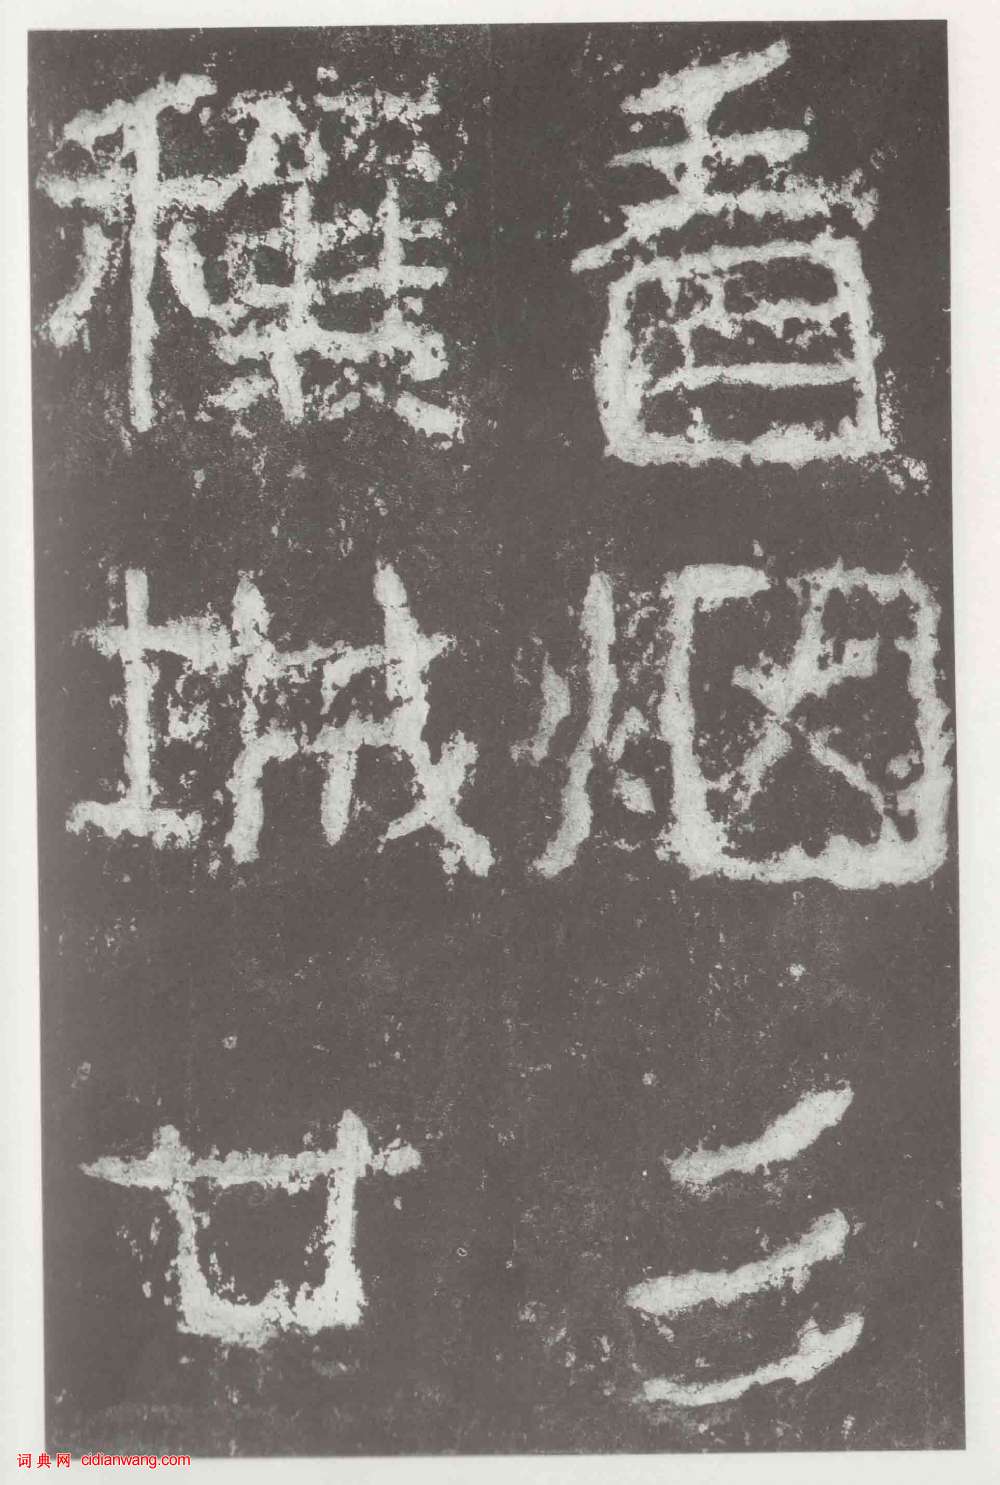 看烟彡
穰城廿
词典网 cidianwang.com